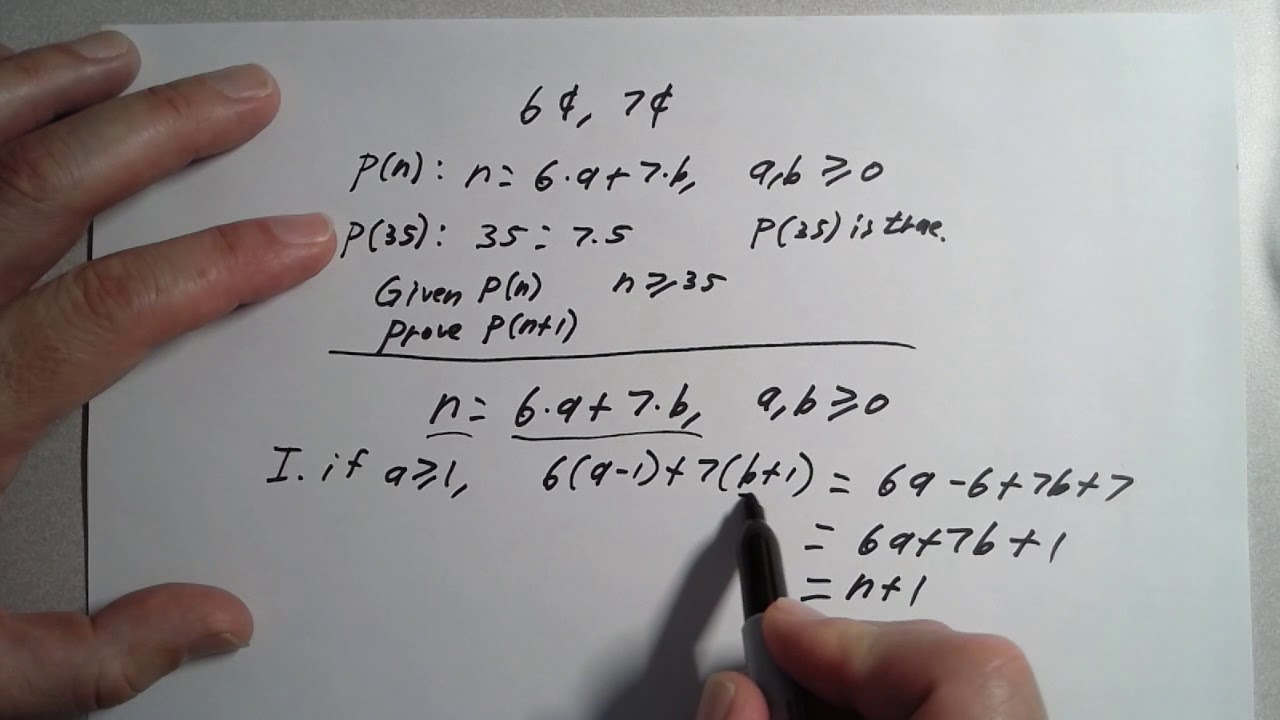 6¢, 7¢
P(n): n = 6·a + 7·b, a,b ≥ 0
P(35): 35 = 7·5 P(35) is true.
Given P(n) n ≥ 35
Prove P(n+1)
n = 6·a + 7·b, a,b ≥ 0
I. if a ≥ 1, 6(a-1) + 7(b+1) = 6a - 6 + 7b + 7
= 6a + 7b + 1
= n + 1